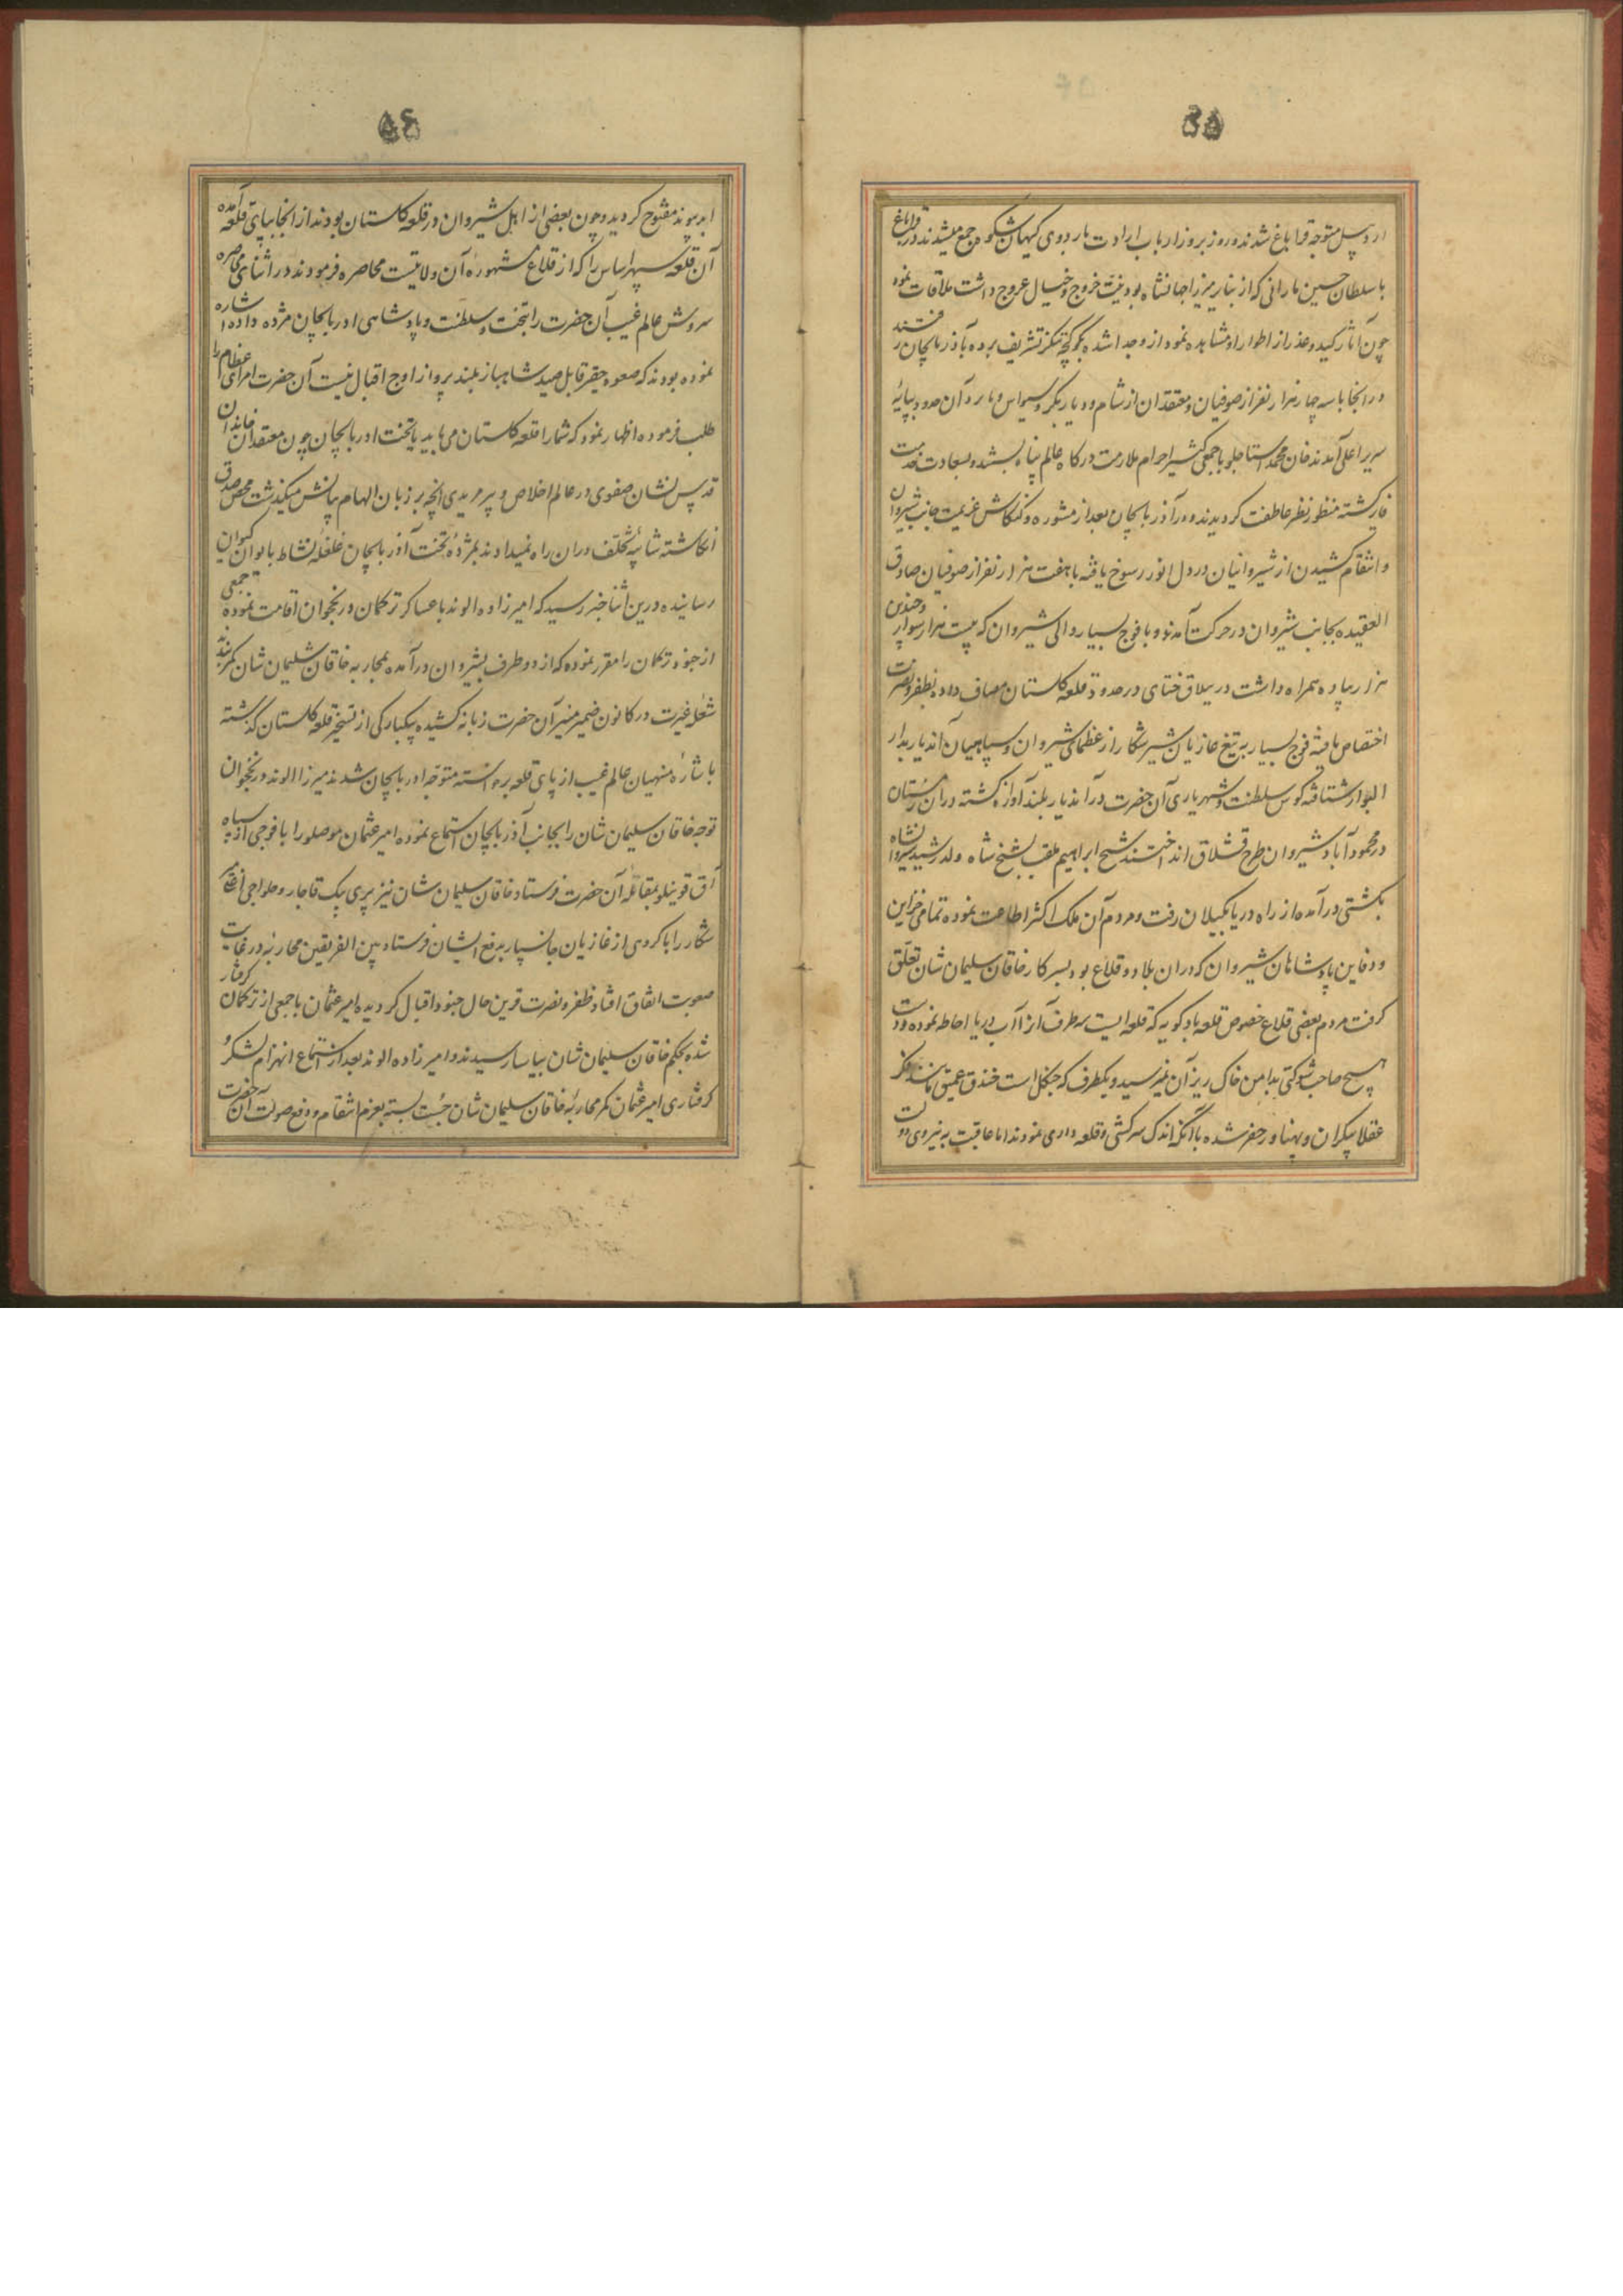 ۵۵
اردبیل متوجه قراباغ شدند و روز بروز ارباب ارادت باردوی کیهان شکوه جمع میشدند در قراباغ
با سلطان حسین بارانی که از بنایر میرزا جهانشاه بود نیت خروج و خیال عروج داشت ملاقات نموده
چون آثار کید و غدر از اطوار او مشاهده نمود از و جدا شده بکوکچه تنکز تشریف برده بآذربایجان رفتند
در انجا با سه چهار هزار نفر از صوفیان و معتقدان از شام و دیاربکر و سیواس و بآن حدود بپایهٔ
سریر اعلی آمدند خان محمد استاجلو با جمعی کثیر احرام ملازمت درکاه عالم پناه بسته و بسعادت خدمت
فایز کشته منظور نظر عاطفت کردیدند و در آذربایجان بعد از مشوره و کنکاش عزیمت جانب شیروان
و انتقام کشیدن از شیروانیان در دل انور رسوخ یافته با هفت هزار نفر از صوفیان صادق
العقیده بجانب شیروان در حرکت آمدند و با فوج بسیار والی شیروان که بیست هزار سوار و چندین
هزار پیاده همراه داشت در ییلاق ختای در حدود قلعه کلستان مصاف داده بظفر و نصرت
اختصاص یافته فوج بسیار به تیغ غازیان شیر شکار از عظمای شیروان و سپاهیان آندیار بدار
البوار شتافته کوس سلطنت و شهریاری آن حضرت در آندیار بلند آوازه کشته در آن زمستان
در محمودآباد شیروان طرح قشلاق انداختند شیخ ابراهیم ملقب بشیخ شاه ولد رشید شیروانشاه
بکشتی درآمده از راه دریا بکیلان رفت و مردم آن ملک اکثر اطاعت نموده تمامی خزاین
و دفاین پادشاهان شیروان که در ان بلاد و قلاع بود بسرکار خاقان سلیمان شان تعلق
کرفت مردم بعضی قلاع خصوص قلعه بادکوبه که قلعه ایست سه طرف آنرا آب دریا احاطه نموده و دست
هیچ صاحب شوکتی بدامن خاک ریز آن نمیرسید و یکطرف که جنکل است خندق عمیق مانند فکر
عقلا بیکران و پهناور حفر شده با آنکه اندک سرکشی و قلعه داری نمودند اما عاقبت به نیروی دولت
۵۶
ابد پیوند مفتوح کردید و چون بعضی از اهل شیروان در قلعه کلستان بودند از انجا بپای قلعه آمده
آن قلعه سپهر اساس را که از قلاع مشهوره آن ولایتست محاصره فرمودند در اثنای محاصره
سروش عالم غیب آن حضرت را بتخت و سلطنت و پادشاهی ادربایجان مژده داده اشاره
نموده بودند که صعوه حقیر قابل صید شاهباز بلند پرواز اوج اقبال نیست آن حضرت امرای عظام را
طلب فرموده اظهار نمود که شما را قلعه کلستان می باید یا تخت ادربایجان چون معتقدان خاندان
قدس نشان صفوی در عالم اخلاص و پیر مریدی آنچه بر زبان الهام بیانش میکذشت محض صدق
انکاشته شایبهٔ تخلف در ان راه نمیدادند بمژدهٔ تخت آذربایجان غلغلهٔ نشاط بایوان کیوان
رسانیده درین اثنا خبر رسید که امیرزاده الوند با عساکر ترکمان در نخجوان اقامت نموده جمعی
از جنود ترکمان را مقرر نموده که از دو طرف بشیروان درآمده بمحاربه خاقان سلیمان شان کمر بندند
شعله غیرت در کانون ضمیر منیر آن حضرت زبانه کشیده بیکبارکی از تسخیر قلعه کلستان کذشته
باشارهٔ منهیان عالم غیب از پای قلعه برخواسته متوجه ادربایجان شدند میرزا الوند در نخجوان
توجه خاقان سلیمان شان را بجانب آذربایجان استماع نموده امیر عثمان موصلو را با فوجی از سپاه
آق قوینلو بمقابله آن حضرت فرستاد خاقان سلیمان شان نیز پیری بیک قاجار و حلواجی اغلی
شکار را با کروهی از غازیان جانسپار بدفع ایشان فرستاد بین الفریقین محاربه در غایت
صعوبت اتفاق افتاد ظفر و نصرت قرین حال جنود اقبال کردیده امیر عثمان با جمعی از ترکمان کرفتار
شده بحکم خاقان سلیمان شان بیاسا رسیدند و امیرزاده الوند بعد از استماع انهزام لشکر و
کرفتاری امیر عثمان کمر محاربهٔ خاقان سلیمان شان چست بسته بعزم انتقام و دفع صولت آن حضرت